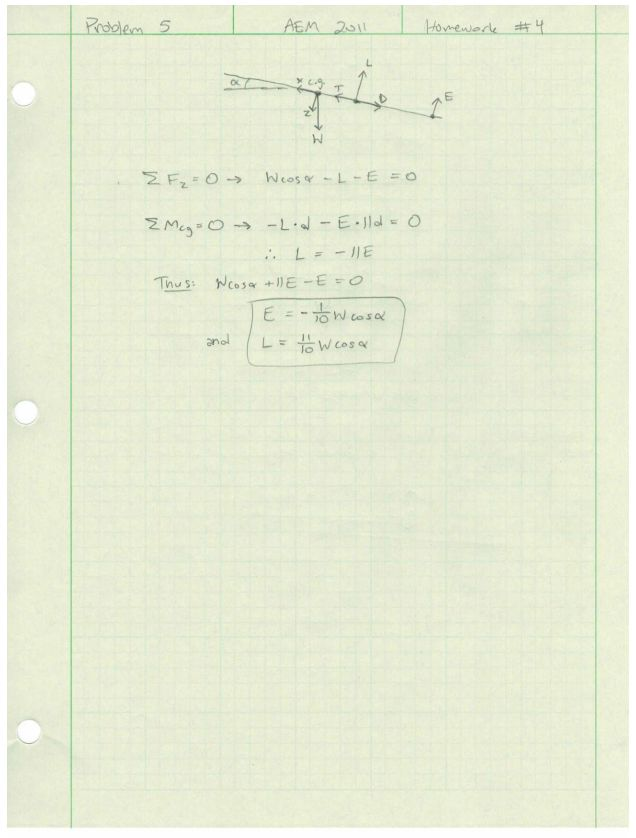 Problem 5 AEM 2011 Homework #4
L
α x c.g. T D E
z
W
ΣF_z = 0 → Wcosα - L - E = 0
ΣM_cg = 0 → -L·d - E·11d = 0
∴ L = -11E
Thus: Wcosα + 11E - E = 0
E = -1/10 W cosα
and L = 11/10 W cosα